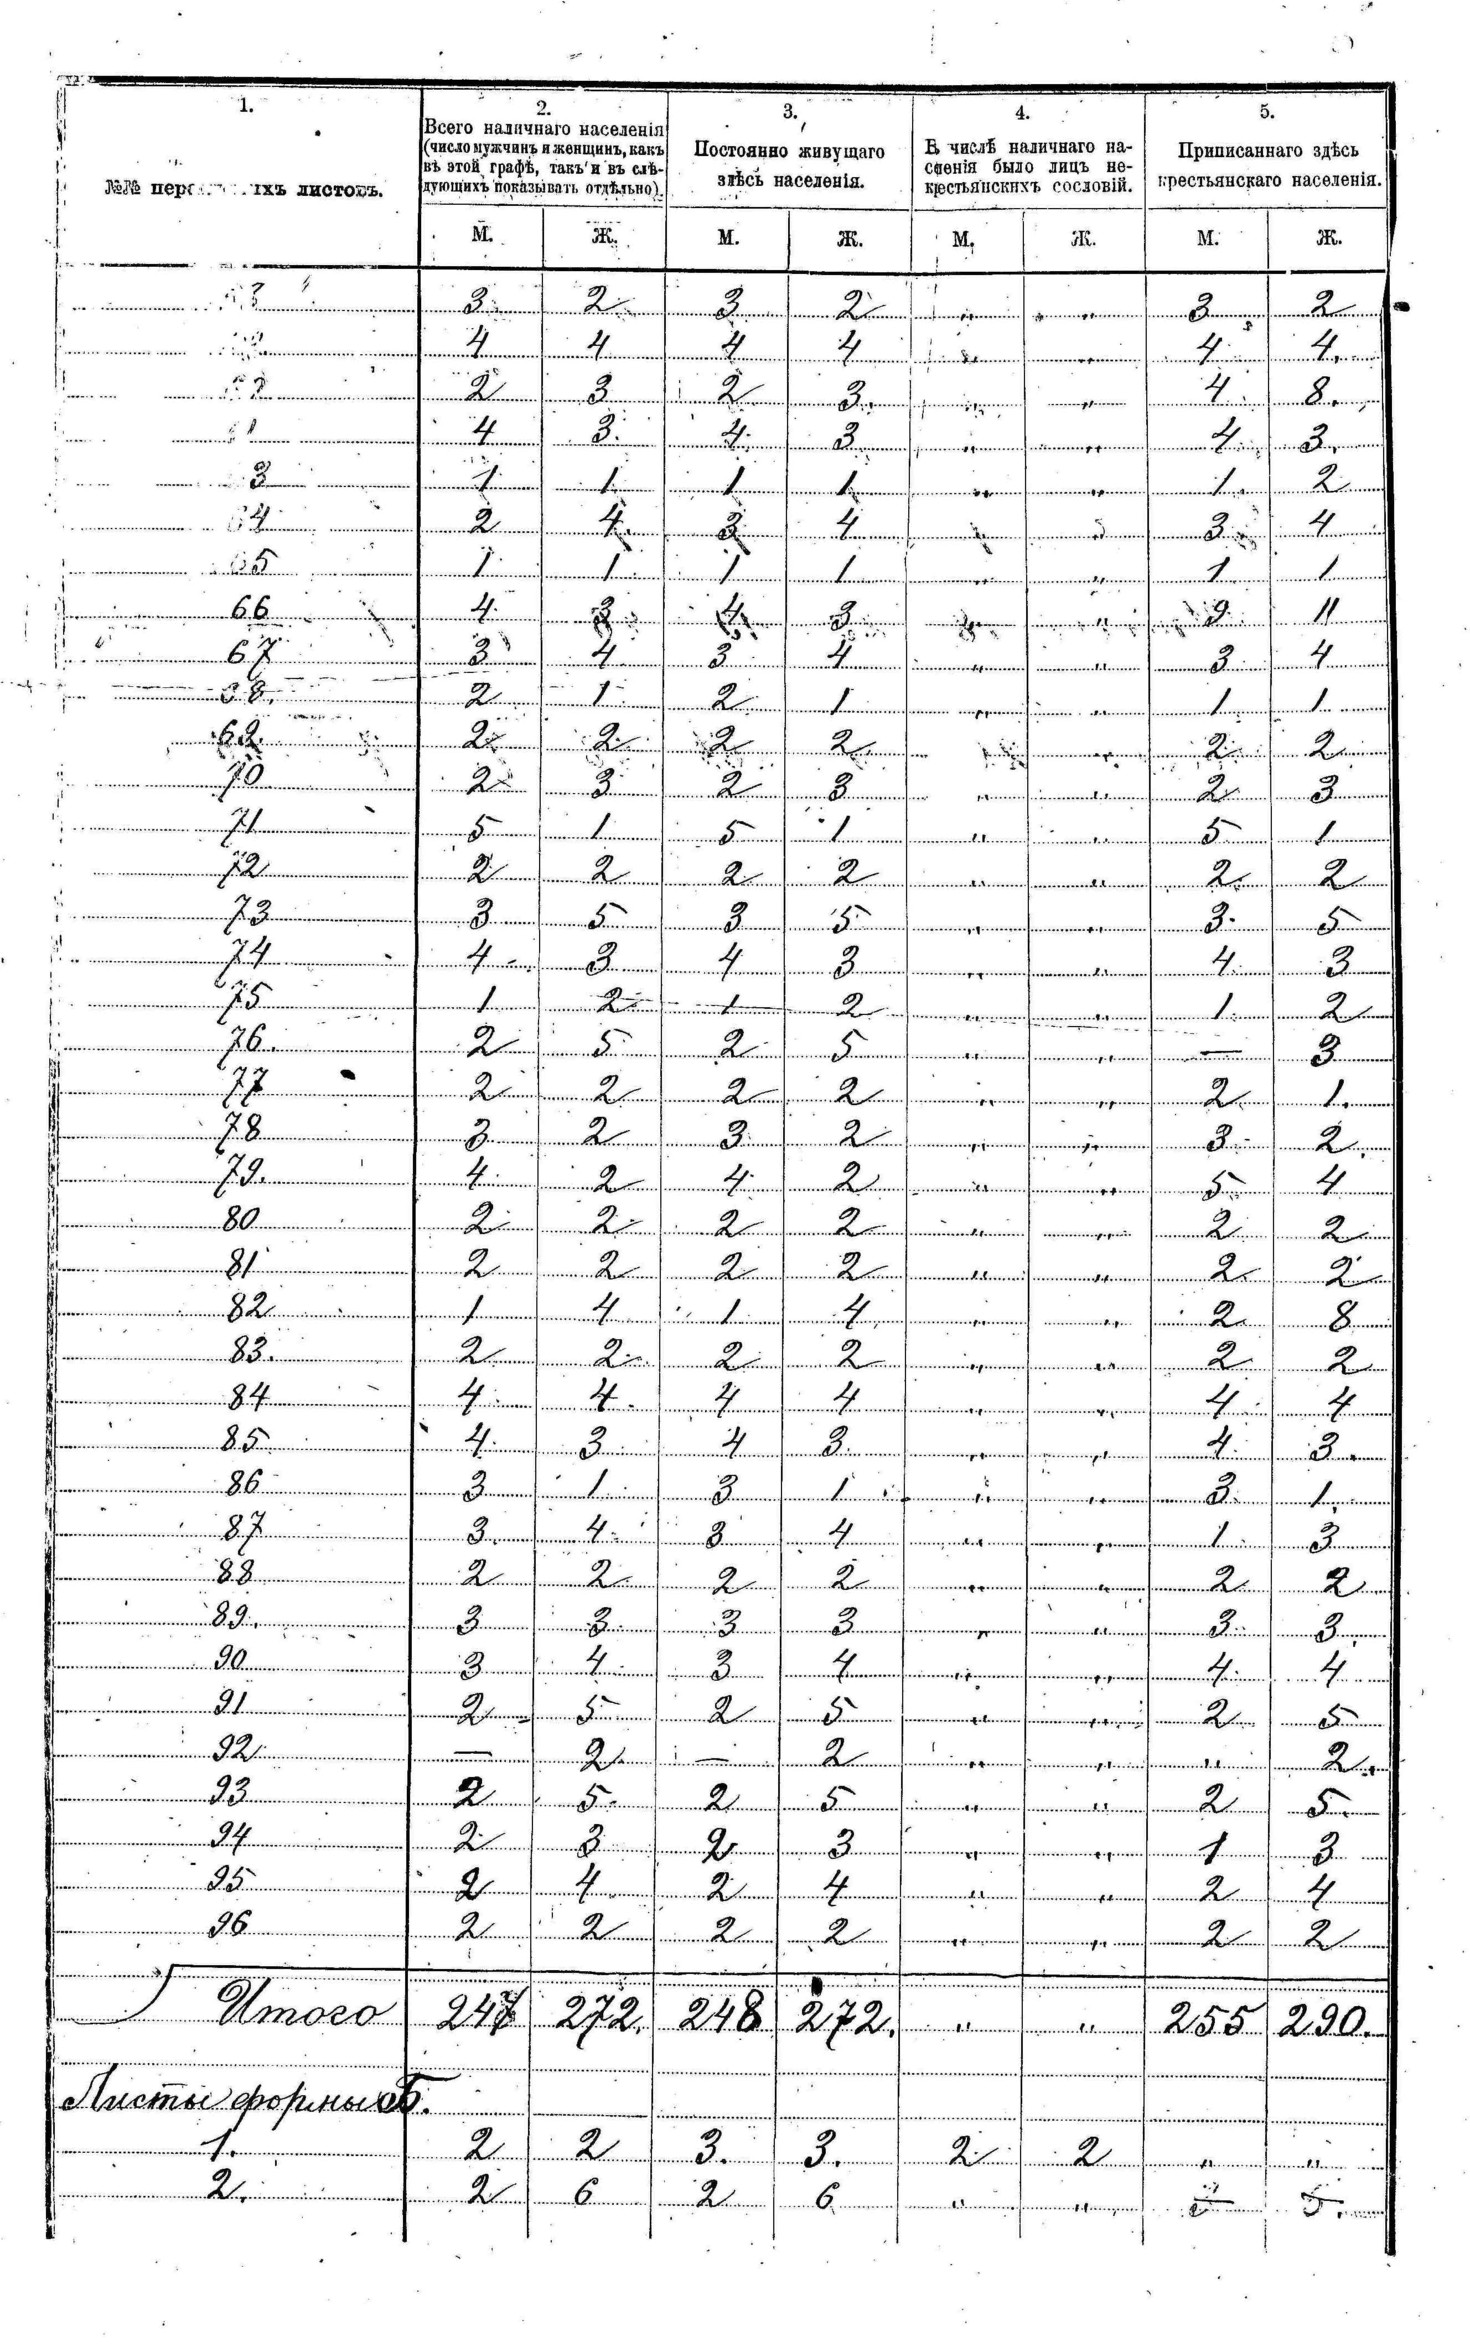 1. 2. 3. 4. 5.
№№ листовъ.
Всего наличнаго населенія
(число мужчинъ и женщинъ, какъ
въ этой графѣ, такъ и въ слѣ-
дующихъ показывать отдѣльно).
Постоянно живущаго
здѣсь населенія.
В числѣ наличнаго на-
сленія было лицъ не-
крестьянскихъ сословій.
Приписаннаго здѣсь
крестьянскаго населенія.
М. Ж. М. Ж. М. Ж. М. Ж.
3 2 3 2 „ „ 3 2
4 4 4 4 „ „ 4 4
2 3 2 3 „ „ 4 8
4 3 4 3 „ „ 4 3
1 1 1 1 „ „ 1 2
64 2 4 3 4 „ „ 3 4
65 1 1 1 1 „ „ 1 1
66 4 3 4 3 „ „ 9 11
67 3 4 3 4 „ „ 3 4
68 2 1 2 1 „ „ 1 1
69 2 2 2 2 „ „ 2 2
70 2 3 2 3 „ „ 2 3
71 5 1 5 1 „ „ 5 1
72 2 2 2 2 „ „ 2 2
73 3 5 3 5 „ „ 3 5
74 4 3 4 3 „ „ 4 3
75 1 2 1 2 „ „ 1 2
76. 2 5 2 5 „ „ — 3
77 2 2 2 2 „ „ 2 1
78 3 2 3 2 „ „ 3 2
79. 4 2 4 2 „ „ 5 4
80 2 2 2 2 „ „ 2 2
81 2 2 2 2 „ „ 2 2
82 1 4 1 4 „ „ 2 8
83. 2 2 2 2 „ „ 2 2
84 4 4 4 4 „ „ 4 4
85 4 3 4 3 „ „ 4 3
86 3 1 3 1 „ „ 3 1
87 3 4 3 4 „ „ 1 3
88 2 2 2 2 „ „ 2 2
89. 3 3 3 3 „ „ 3 3
90 3 4 3 4 „ „ 4 4
91 2 5 2 5 „ „ 2 5
92 — 2 — 2 „ „ „ 2
93 2 5 2 5 „ „ 2 5
94 2 3 2 3 „ „ 1 3
95 2 4 2 4 „ „ 2 4
96 2 2 2 2 „ „ 2 2
Итого 247 272. 248 272. „ „ 255 290.
Листы формы Б.
1. 2 2 3. 3. 2 2 „ „
2. 2 6 2 6 „ „ 5 5.